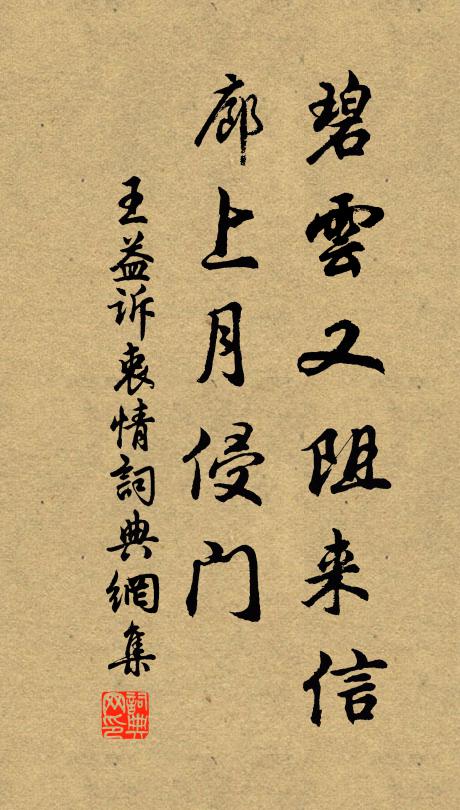 碧雲又阻来信
廊上月侵门
王益诉衷情詞典網集
詞典网印